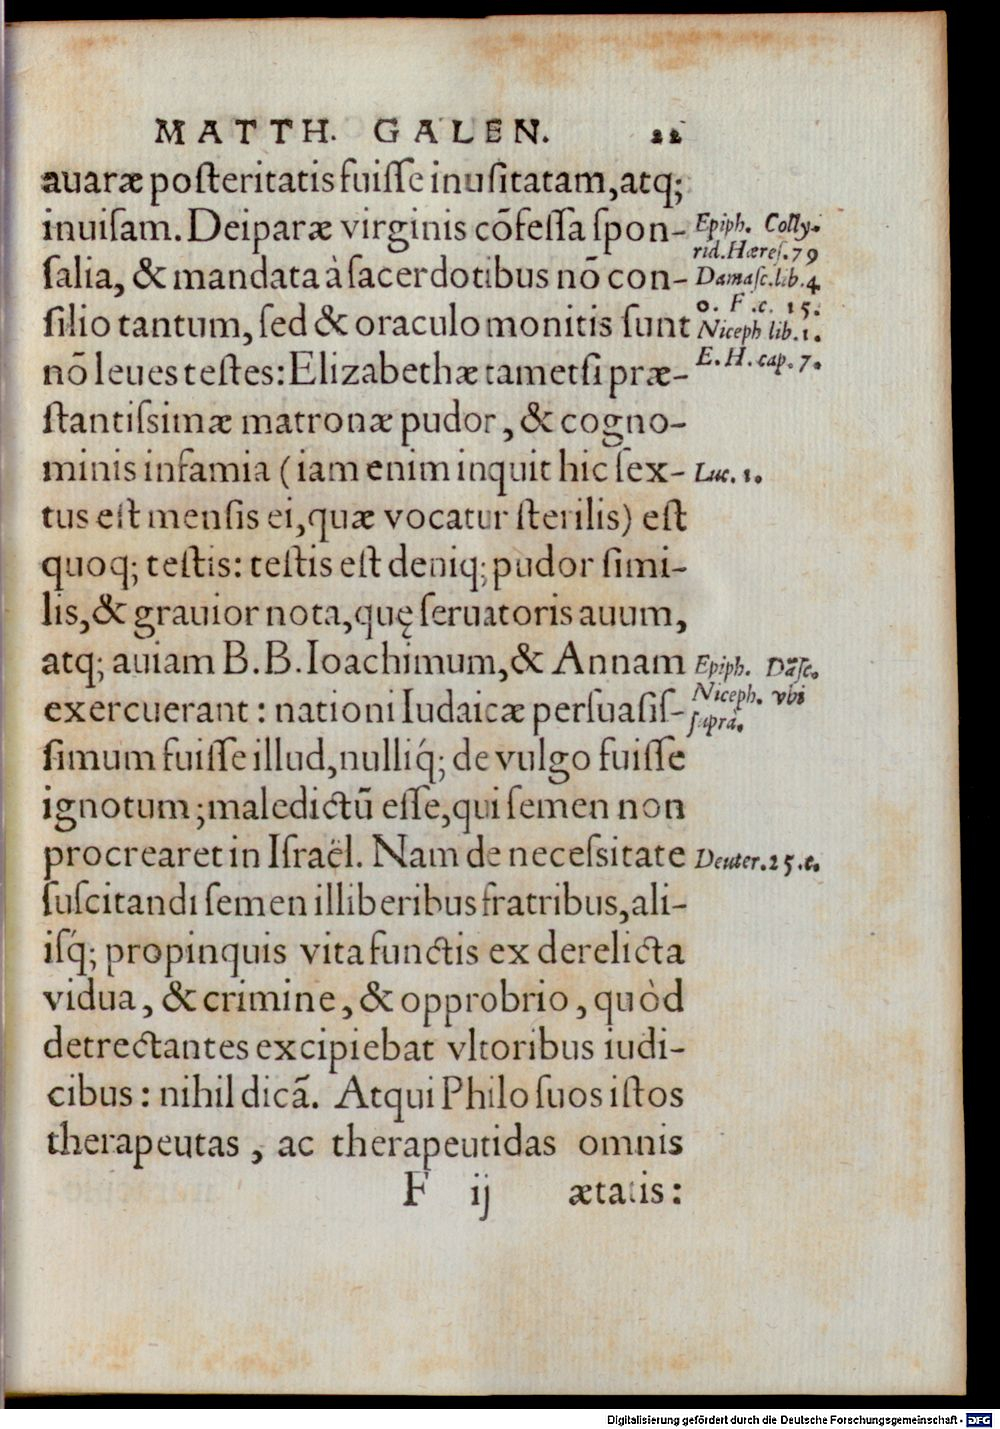 MATTH. GALEN. 22
auaræ poſteritatis fuiſſe inuſitatam, atq;
inuiſam. Deiparæ virginis cōfeſſa ſpon-
ſalia, & mandata à ſacerdotibus nō con-
ſilio tantum, ſed & oraculo monitis ſunt
nō leues teſtes: Elizabethæ tametſi præ-
ſtantiſsimæ matronæ pudor, & cogno-
minis infamia (iam enim inquit hic ſex-
tus eſt menſis ei, quæ vocatur ſterilis) eſt
quoq; teſtis: teſtis eſt deniq; pudor ſimi-
lis, & grauior nota, quę ſeruatoris auum,
atq; auiam B. B. Ioachimum, & Annam
exercuerant: nationi Iudaicæ perſuaſiſ-
ſimum fuiſſe illud, nulliq́; de vulgo fuiſſe
ignotum; maledictū eſſe, qui ſemen non
procrearet in Iſraël. Nam de neceſsitate
ſuſcitandi ſemen illiberibus fratribus, ali-
iſq́; propinquis vita functis ex derelicta
vidua, & crimine, & opprobrio, quòd
detrectantes excipiebat vltoribus iudi-
cibus: nihil dicā. Atqui Philo ſuos iſtos
therapeutas, ac therapeutidas omnis
F ij ætatis:
Epiph. Colly.
rid. Hæreſ. 79
Damaſc. lib. 4
o. F. c. 15.
Niceph lib. 1.
E. H. cap. 7.
Luc. 1.
Epiph. Dāſc.
Niceph. vbi
ſupra.
Deuter. 25. c.
Digitalisierung gefördert durch die Deutsche Forschungsgemeinschaft - DFG